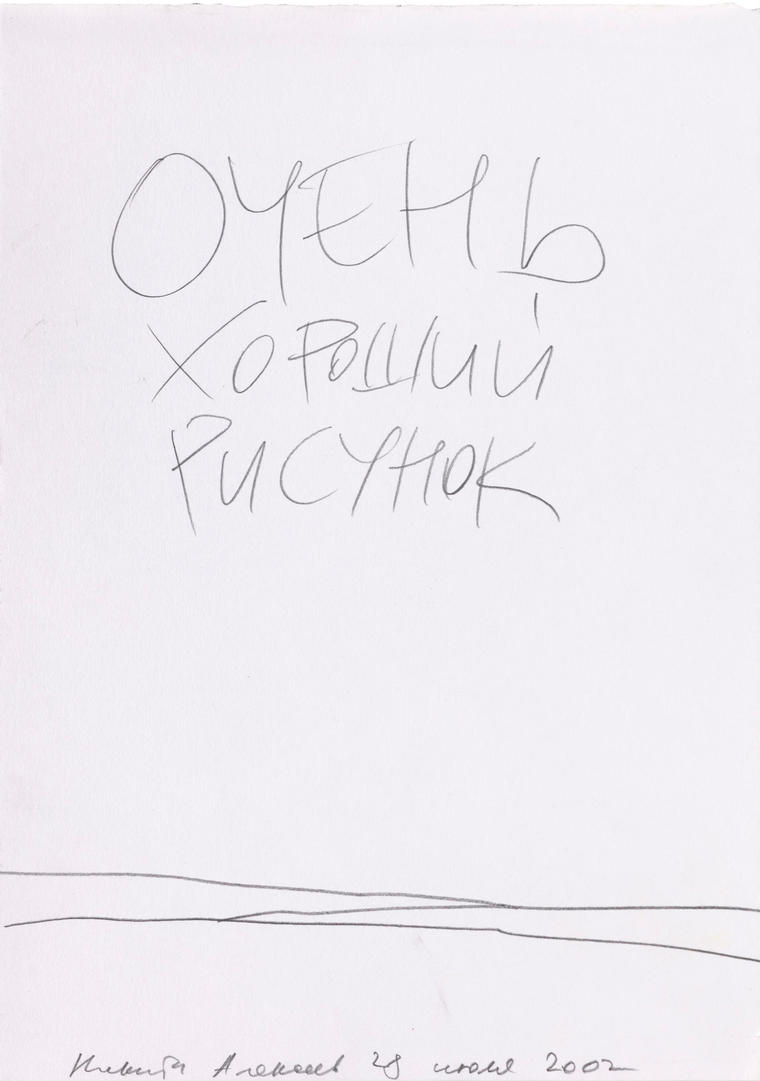 ОЧЕНЬ
ХОРОШИЙ
РИСУНОК
Никита Алексеев 28 июля 2002